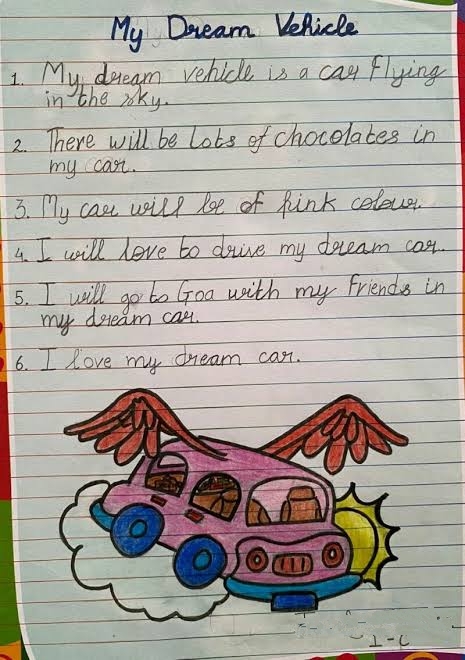 My Dream Vehicle
1. My dream vehicle is a car flying
in the sky.
2. There will be lots of chocolates in
my car.
3. My car will be of pink colour.
4. I will love to drive my dream car.
5. I will go to Goa with my friends in
my dream car.
6. I love my dream car.